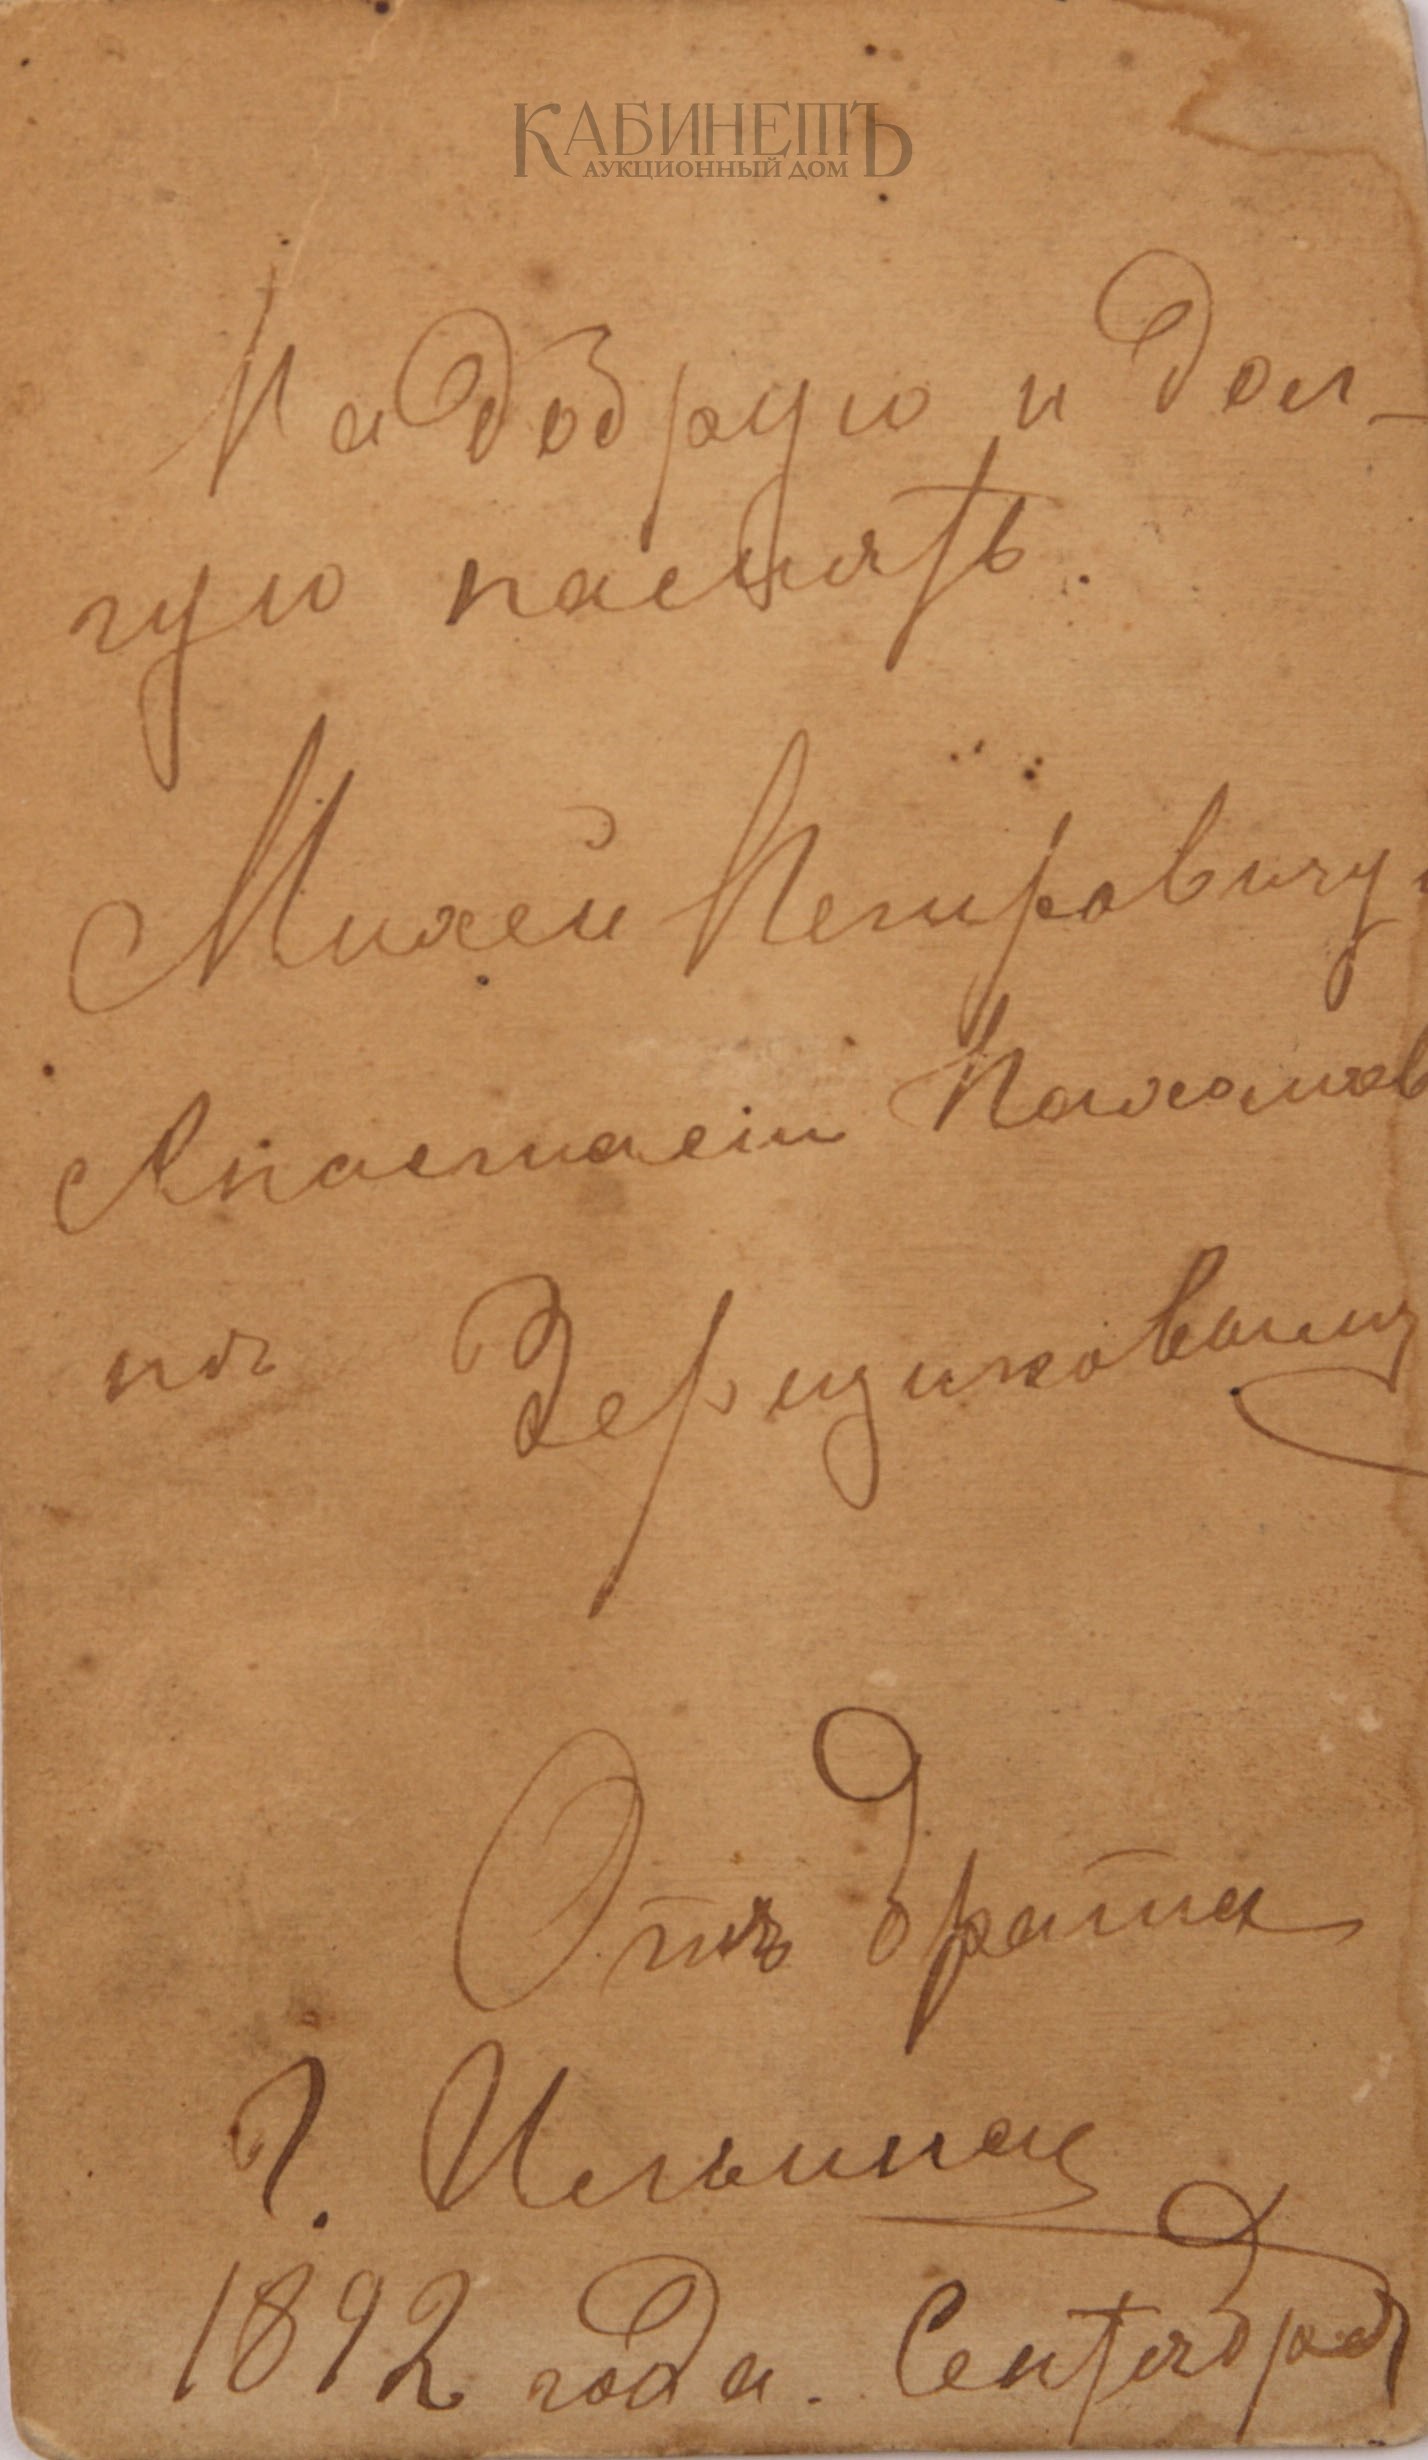 КАБИНЕТЪ
АУКЦИОННЫЙ ДОМ
На добрую и дол-
гую память.
Михей Петровичу и
Анастасiи Пахомов
нѣ Зерщиковымъ
Отъ брата
Г. Ильина
1892 года. Сентября